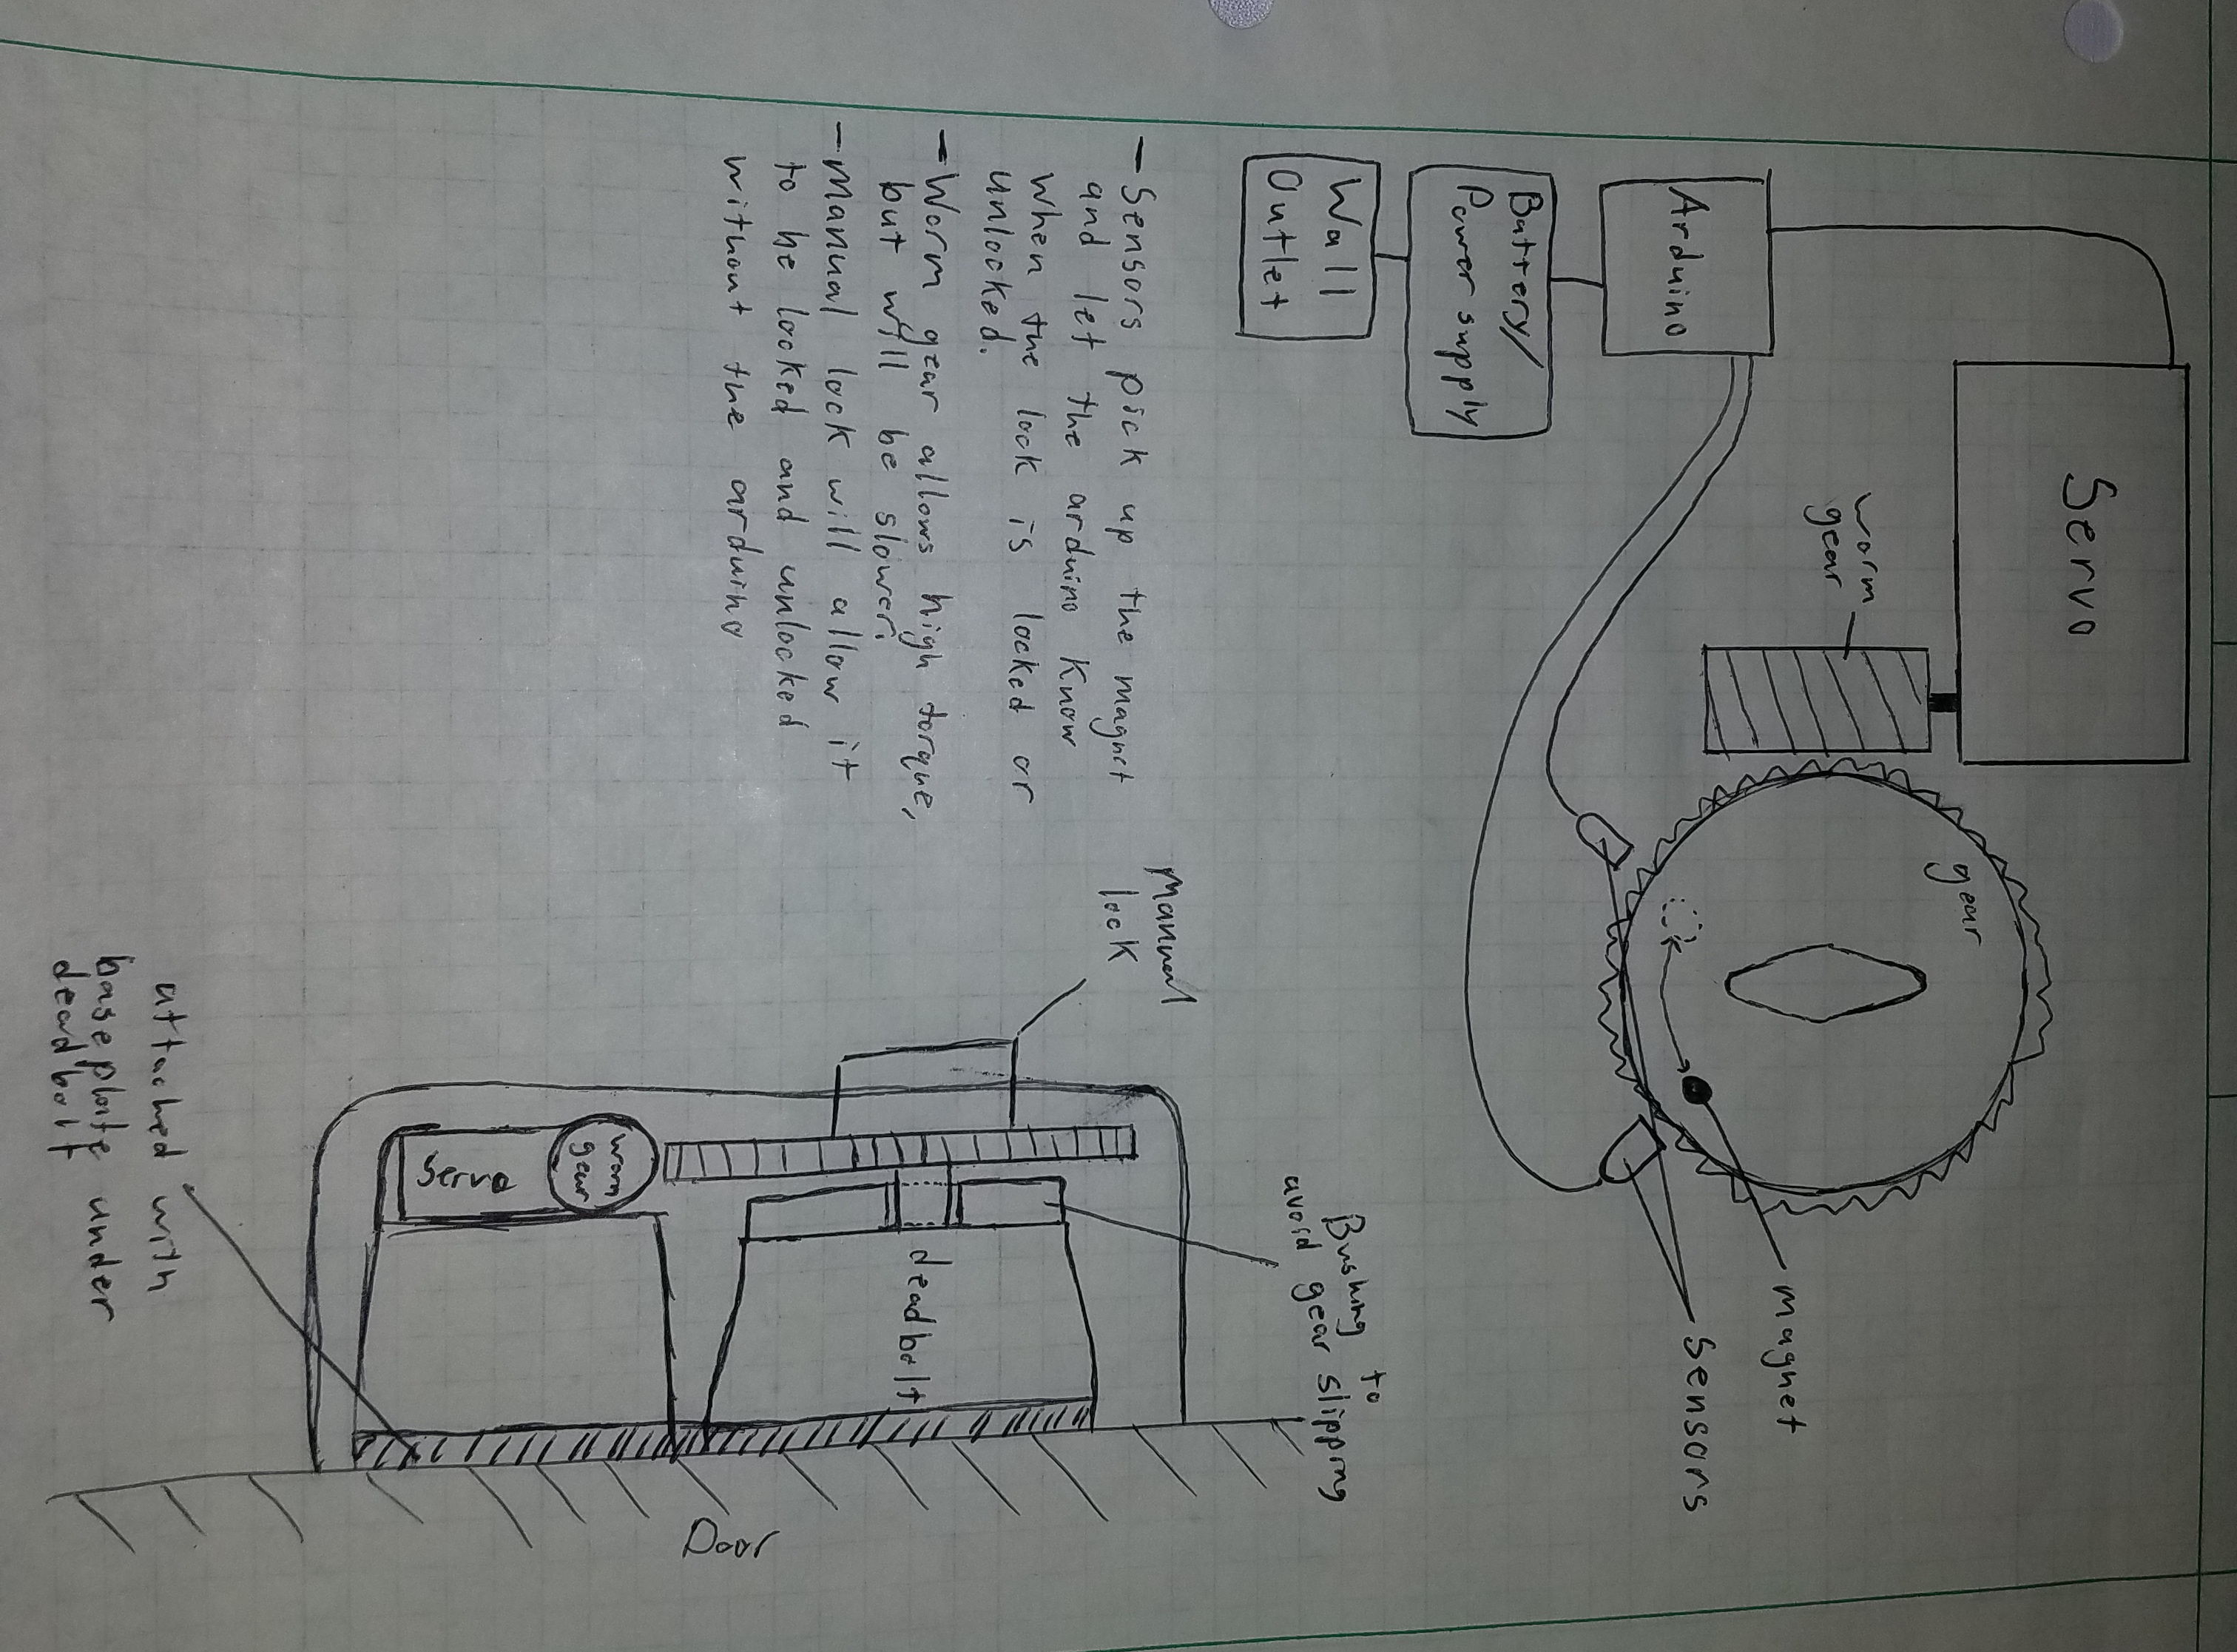 Servo
worm
gear
gear
Arduino
Battery/
Power supply
Wall
Outlet
magnet
Sensors
- Sensors pick up the magnet
and let the arduino know
when the lock is locked or
unlocked.
- Worm gear allows high torque,
but will be slower.
- Manual lock will allow it
to be locked and unlocked
without the arduino
Manual
lock
Bushing to
avoid gear slipping
Servo
worm
gear
deadbolt
attached with
baseplate under
deadbolt
Door